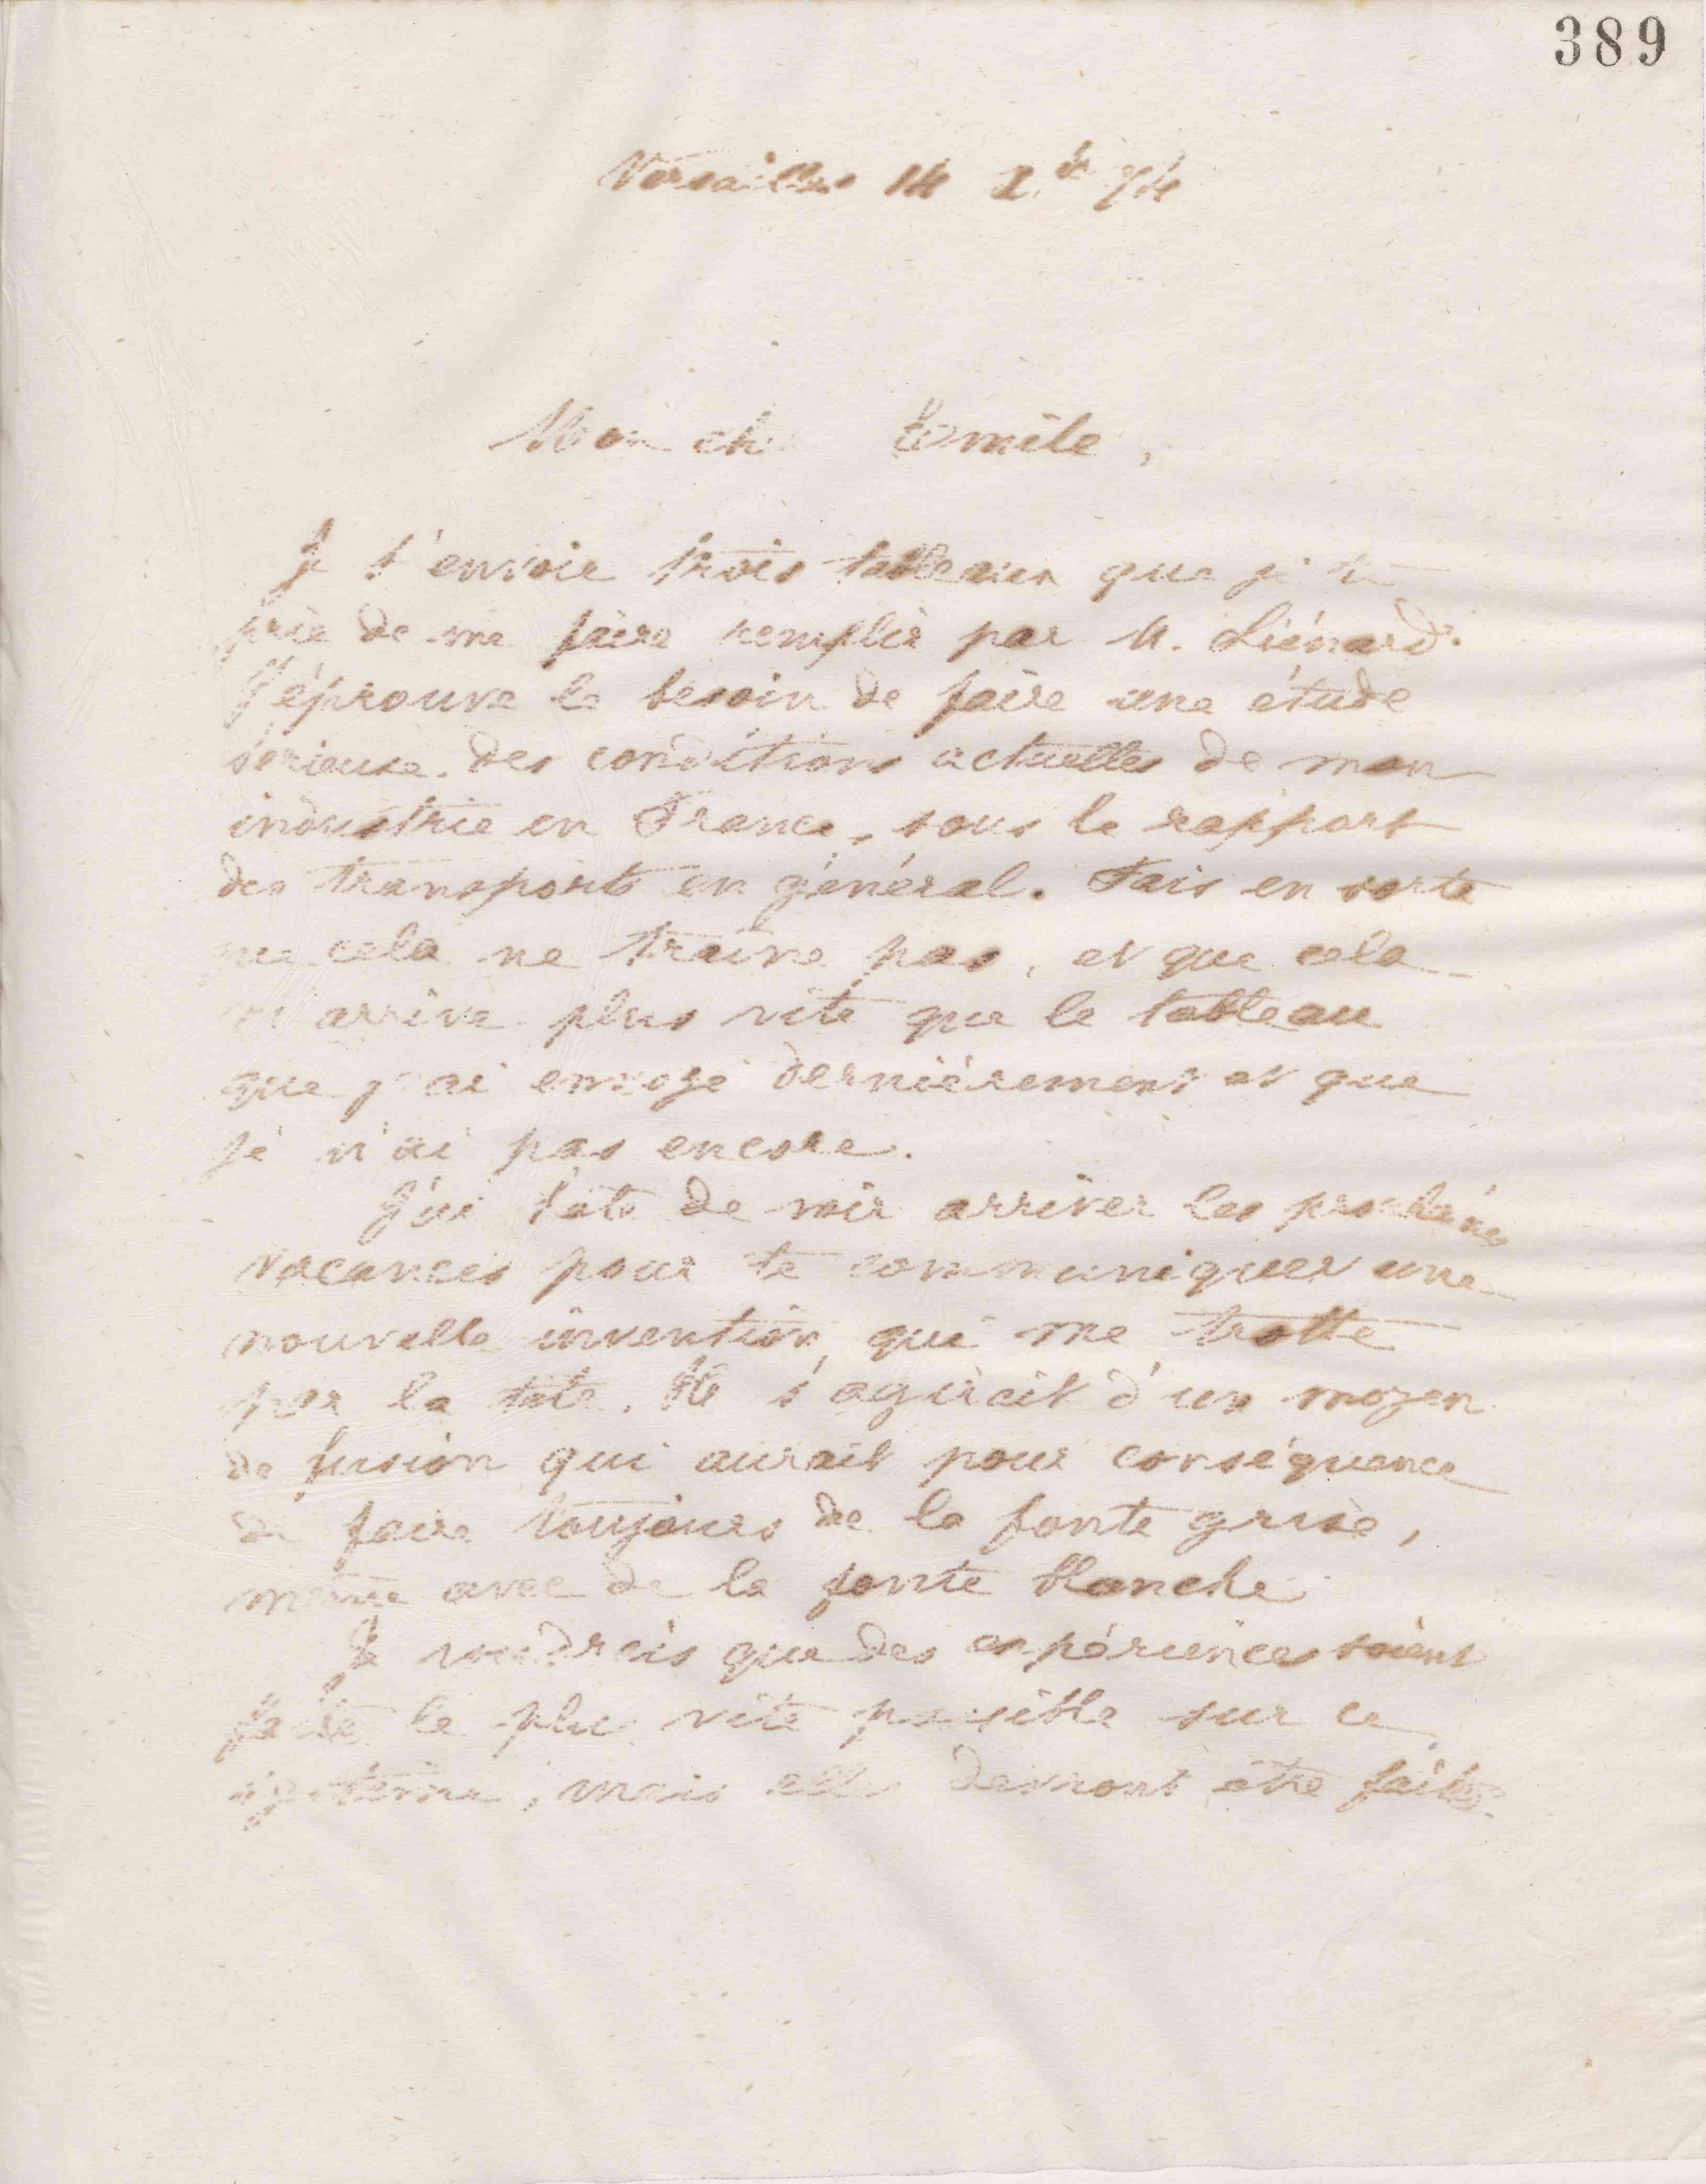 389
Versailles 14 X.bre 74
Mon cher Emile,
Je t'envoie trois tableaux que je te
prie de me faire remplir par M. Liénard.
J'éprouve le besoin de faire une étude
serieuse des conditions actuelles de mon
industrie en France, sous le rapport
des transports en général. Fais en sorte
que cela ne traine pas, et que cela
m'arrive plus vite que le tableau
que j'ai envoyé dernièrement et que
je n'ai pas encore.
J'ai hâte de voir arriver les prochaines
vacances pour te communiquer une
nouvelle invention qui me trotte
par la tête. Il s'agirait d'un moyen
de fusion qui aurait pour conséquence
de faire toujours de la fonte grise,
même avec de la fonte blanche.
Je voudrais que des expériences soient
faites le plus vite possible sur ce
système, mais elles devront être faites